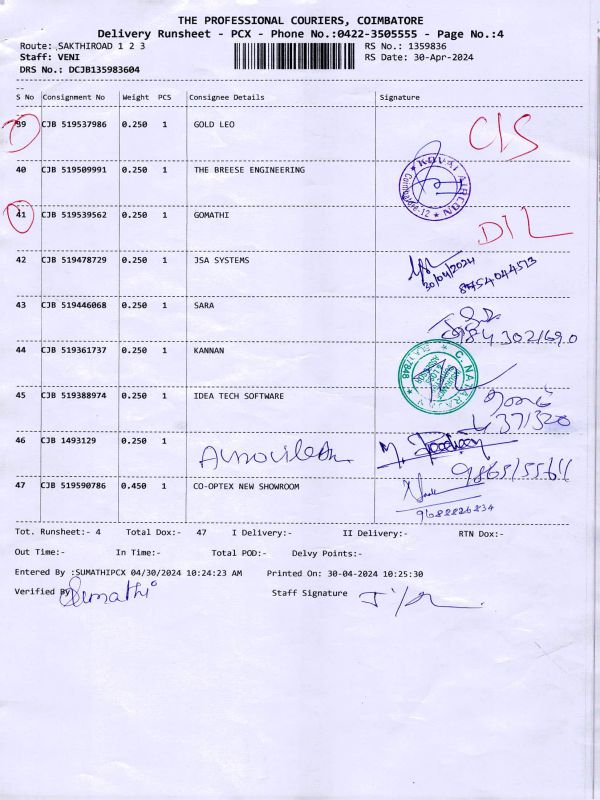 THE PROFESSIONAL COURIERS, COIMBATORE
Delivery Runsheet - PCX - Phone No.:0422-3505555 - Page No.:4
Route: SAKTHIROAD 1 2 3 RS No.: 1359836
Staff: VENI RS Date: 30-Apr-2024
DRS No.: DCJB135983604
S No Consignment No Weight PCS Consignee Details Signature
39 CJB 519537986 0.250 1 GOLD LEO C/S
40 CJB 519509991 0.250 1 THE BREESE ENGINEERING
KOVAI AIRCON Coimbatore-12
41 CJB 519539562 0.250 1 GOMATHI D/L
42 CJB 519478729 0.250 1 JSA SYSTEMS
30/04/2024
43 CJB 519446068 0.250 1 SARA
44 CJB 519361737 0.250 1 KANNAN
45 CJB 519388974 0.250 1 IDEA TECH SOFTWARE
46 CJB 1493129 0.250 1
47 CJB 519590786 0.450 1 CO-OPTEX NEW SHOWROOM
Tot. Runsheet:- 4 Total Dox:- 47 I Delivery:- II Delivery:- RTN Dox:-
Out Time:- In Time:- Total POD:- Delvy Points:-
Entered By :SUMATHIPCX 04/30/2024 10:24:23 AM Printed On: 30-04-2024 10:25:30
Verified By Sumathi Staff Signature